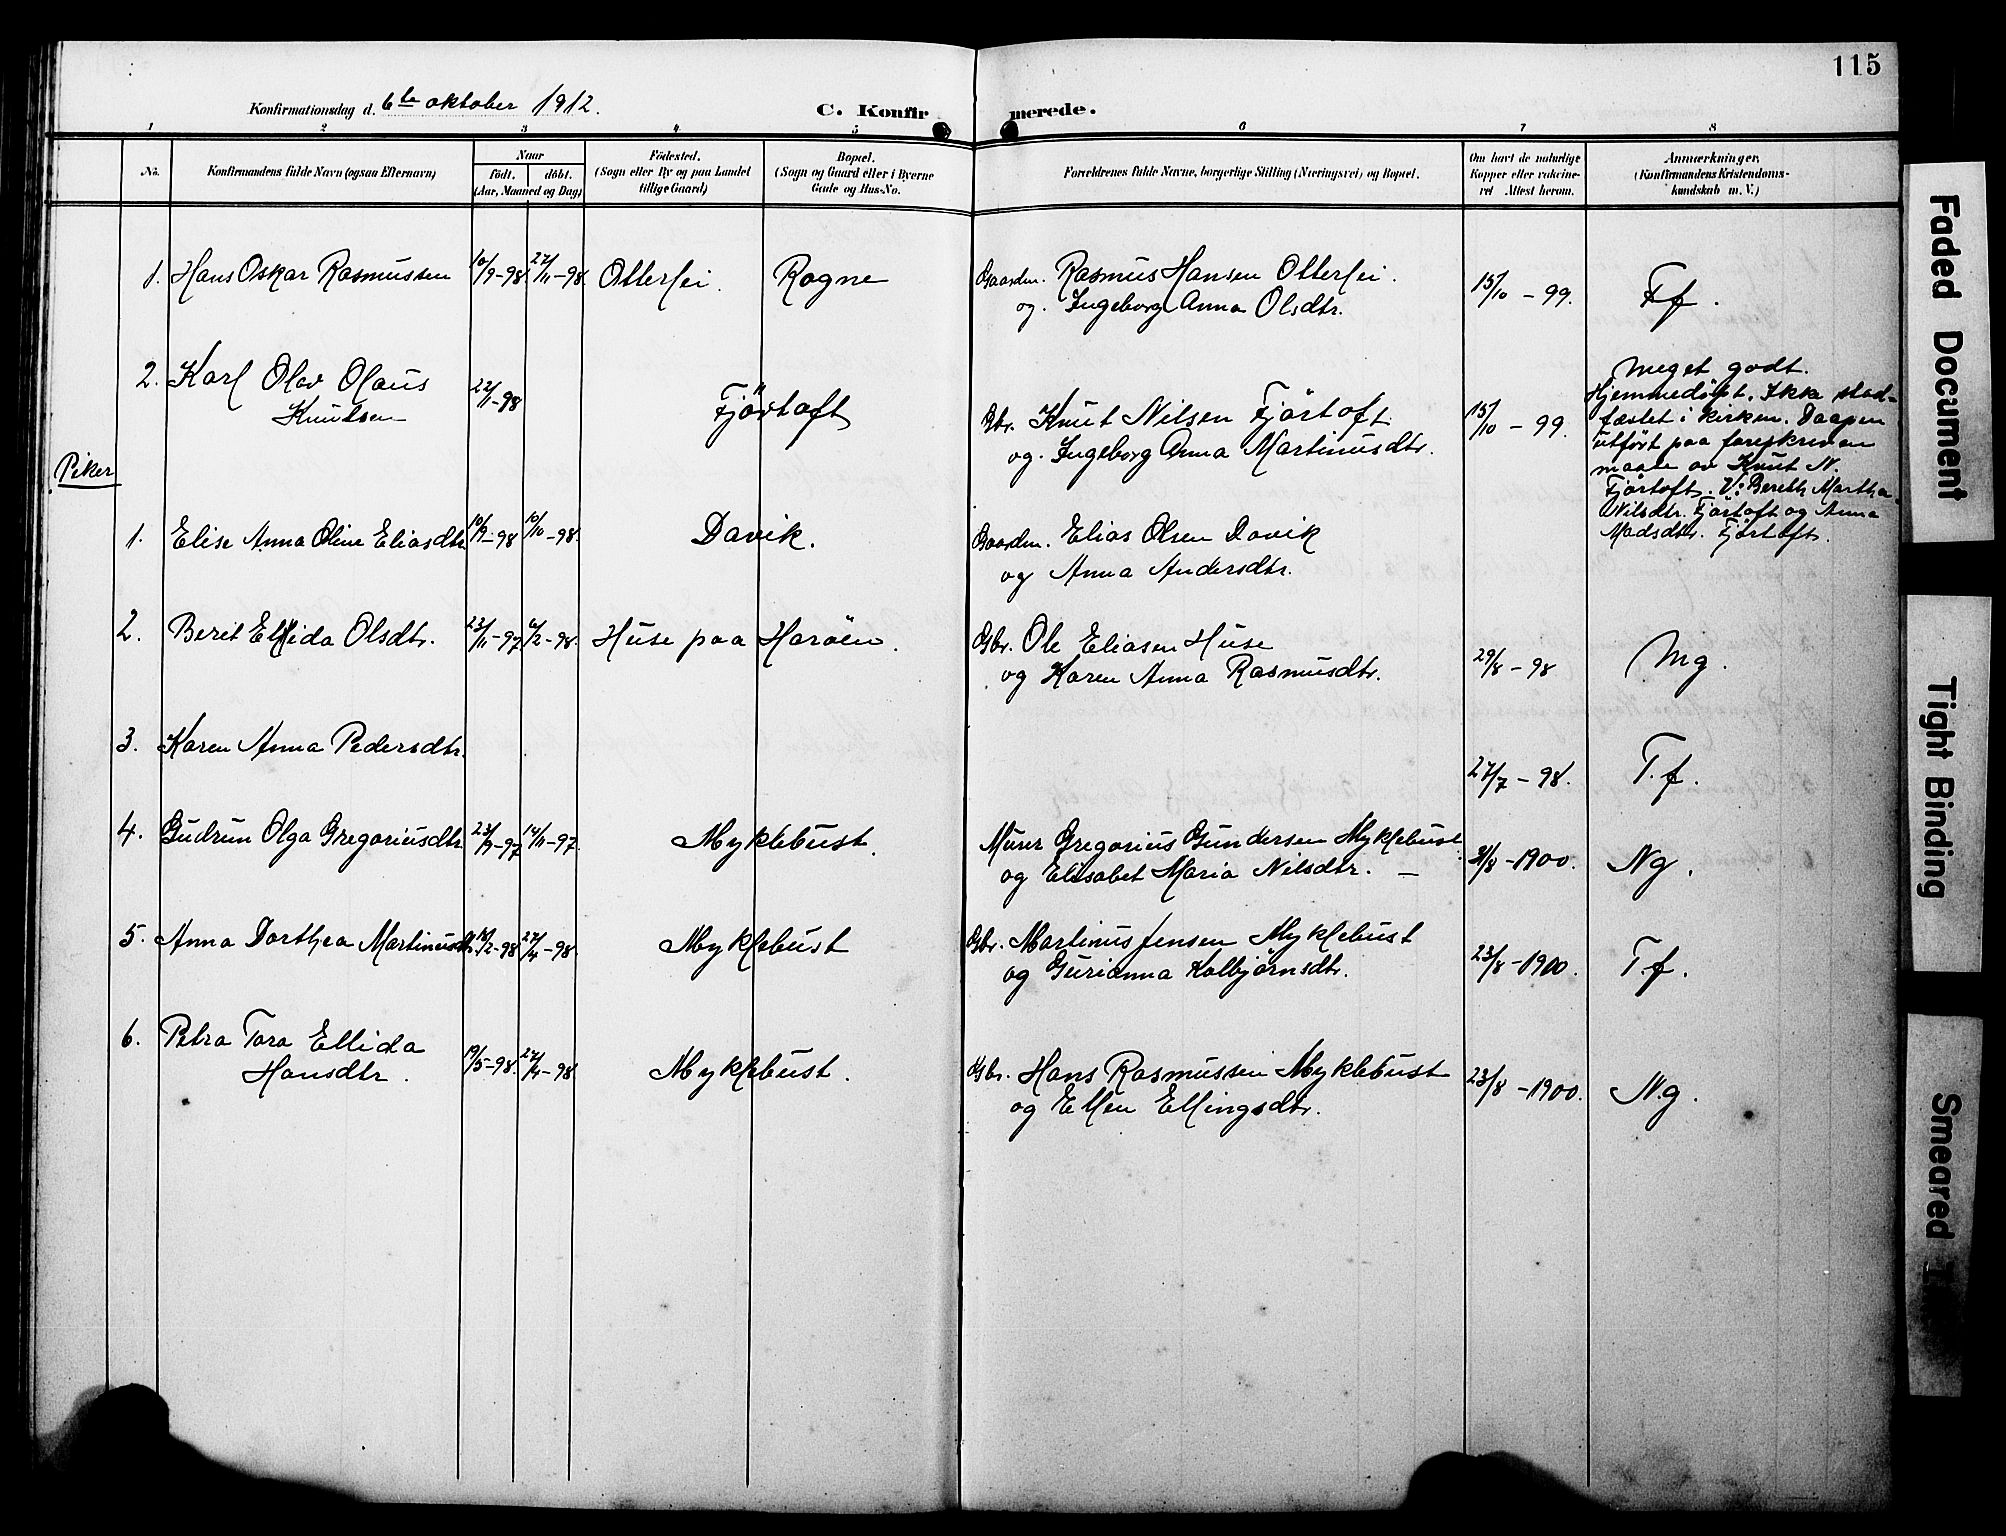 115
Konfirmationsdag d. 6te oktober 1912.
C. Konfirmerede.
1 2 3 4 5 6 7 8
No.
Konfirmandens fulde Navn (ogsaa Efternavn)
Naar
födt. döbt.
(Aar, Maaned og Dag)
Födested.
(Sogn eller By og paa Landet
tillige Gaard)
Bopæl.
(Sogn og Gaard eller i Byerne
Gade og Hus-No.
Forældrenes fulde Navne, borgerlige Stilling (Næringsvei) og Bopæl.
Om havt de naturlige
Kopper eller vakcine-
ret Attest herom.
Anmærkninger.
(Konfirmandens Kristendoms-
kundskab m. V.)
1. Hans Oskar Rasmussen 10/9-98. 27/11-98. Otterlei. Rogne Gaardm. Rasmus Hansen Otterlei. 15/10 - 99. T.f.
og. Ingeborg Anna Olsdtr.
2. Karl Olav Olaus
Knutsen 22/11-98 Fjörtoft Gbr. Knut Nilsen Fjörtoft 15/10 - 99.
og. Ingeborg Anna Martinusdtr.
Meget godt.
Hjemmedöpt. Ikke stad-
fæstet i kirken. Daapen
utfört paa foreskreven
maate av Knut N.
Fjörtoft. V: Bereth Martha
Nilsdtr. Fjörtoft og Anna
Madsdtr. Fjörtoft.
Piker
1. Elise Anna Oline Eliasdtr. 10/9-98 10/10-98. Davik. Gaardm. Elias Olsen Davik
og Anna Andersdtr.
2. Berit Ellida Olsdtr. 23/11-97 6/2-98. Huse paa Haröen. Gbr. Ole Eliasen Huse
og Karen Anna Rasmusdtr. 29/8-98 Mg.
3. Karen Anna Pedersdtr. 27/7-98. T.f.
4. Gudrun Olga Gregoriusdtr. 23/9-97 14/11-97. Myklebust. Murer Gregorius Gundersen Myklebust.
og Elisabet Maria Nilsdtr. — 31/8-1900. Ng.
5. Anna Dorthea Martinusdtr. 16/2-98 27/4-98. Myklebust Gbr. Martinus Jensen Myklebust
og Gurianna Kolbjörnsdtr. 23/8-1900. T.f.
6. Petra Tora Ellida
Hansdtr. 19/5-98. 27/11-98 Myklebust. Gbr. Hans Rasmussen Myklebust 23/8-1900. N.g.
og Ellen Ellingsdtr.
Faded Document
Tight Binding
Smeared